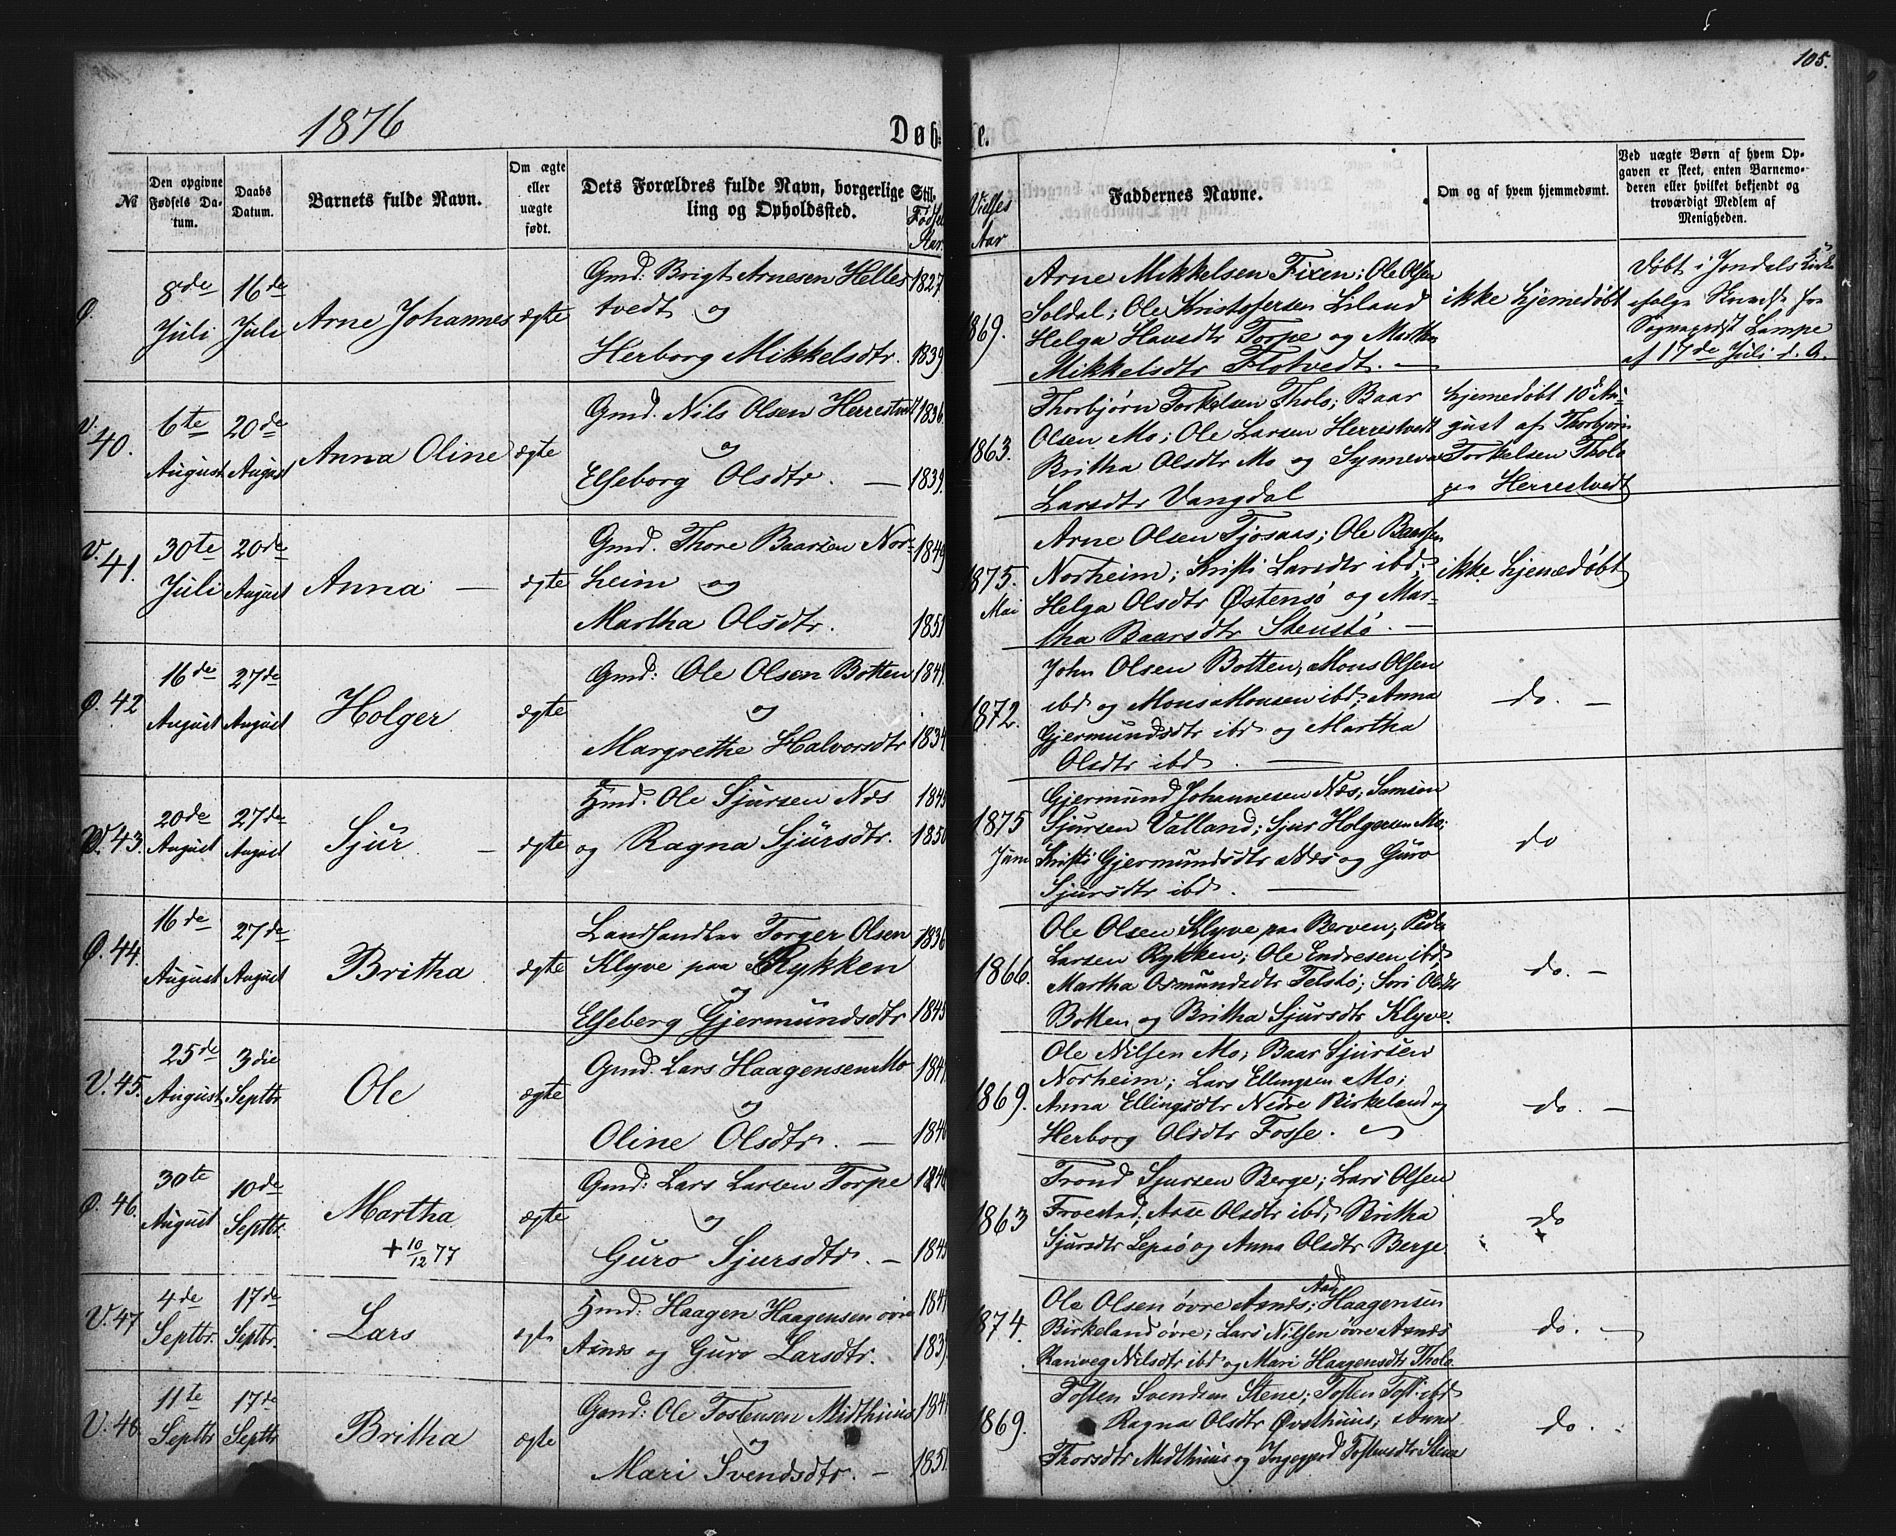 105.
1876
Døb
e.
№
Den opgivne Fødsels Datum.
Daabs Datum.
Barnets fulde Navn.
Om ægte eller uægte født.
Dets Forældres fulde Navn, borgerlige
ling og Opholdssted.
Still.
Fødsels Aar.
Vielses Aar
Faddernes Navne.
Om og af hvem hjemmedømt.
Ved uægte Børn af hvem Opgaven er skeet, enten Barnemoderen eller hvilket bekjendt og troværdigt Medlem af Menigheden.
8de Juli
16de Juli
Arne Johannes
ægte
Gmd. Brigt Arnesen Helles
tvedt og
Herborg Mikkelsdtr.
1827
1839
1869.
Arne Mikkelsen Fixen; Ole Olsen
Soldal; Ole Kristofersen Liland
Helga Hansdtr Torpe og Martha
Mikkelsdtr Flotvedt.
ikke hjemedøbt
Døbt i Jondals Kirke
ifølge
Sognepræst Lampe
af 17de Juli d. A.
V. 40.
6te August
20de August
Anna Oline
ægte
Gmd. Nils Olsen Herrestvedt
og
Elseborg Olsdtr.
1836
1839.
1863.
Thorbjørn Torkelsen Tholo; Baar
Olsen Mo; Ole Larsen Herrestvedt
Britha Olsdtr Mo og Synneva
Larsdtr Vangdal
hjemedøbt 10de Au-
gust af Thorbjørn
Torkelsen Tholo
paa Herrestvedt
V. 41.
30te Juli
20de August
Anna
ægte
Gmd. Thore Baarsen Nor-
heim og
Martha Olsdtr.
1849
1851
1875.
Mai
Arne Olsen Tjosaas; Ole Baarsen
Norheim; Kristi Larsdtr ibd;
Helga Olsdtr Østensø og Mar-
tha Baarsdtr Stenstø.
ikke hjemedøbt
Ø. 42
16de August
27de August
Holger
ægte
Gmd: Ole Olsen Botten
og
Margrethe Halvorsdtr
1841.
1834
1872.
John Olsen Botten; Mons Olsen
ibd og Mons Monsen ibd; Anna
Gjermundsdtr ibd og Martha
Olsdtr ibd.
do.
V. 43.
20de August
27de August
Sjur
ægte
Hmd. Ole Sjursen Næs
og Ragna Sjursdtr.
1845
1850
1875
Juni
Gjermund Johannesen Næs; Samson
Sjursen Valland; Sjur Holgersen Mo;
Kristi Gjermundsdtr Næs og Guro
Sjursdtr ibd.
do
Ø. 44.
16de August
27de August
Britha
ægte
Landhandler Torger Olsen
Klyve paa Rykken
og
Elseberg Gjermundsdtr
1836
1845
1866.
Ole Olsen Klyve paa Berven; Peder
Larsen Rykken; Ole Endresen ibd
Martha Osmundsdtr Telstø; Siri Olsdtr
Botten og Britha Sjursdtr Klyve.
do.
V. 45.
25de August
3die Septbr
Ole
ægte
Gmd. Lars Haagensen Mo
og
Oline Olsdtr.
1841.
1846
1869.
Ole Nilsen Mo; Baar Sjursen
Norheim; Lars Ellingsen Mo;
Anna Ellingsdtr Nedre Birkeland og
Herborg Olsdtr Fosse.
do.
Ø. 46.
30te August
10de Septbr.
Martha
+ 10/12 77
ægte
Gmd: Lars Larsen Torpe
og
Guro Sjursdtr.
1840
1845
1863
Trond Sjursen Berge; Lars Olsen
Froestad; Aase Olsdtr ibd; Britha
Sjursdtr Lepsø og Anna Olsdtr Berge
do
V. 47
4de Septbr.
17de Septbr.
Lars
ægte
Hmd: Haagen Haagensen øvre
Axnes og Guro Larsdtr.
1841
1839
1874.
Ole Olsen øvre Axnes; Aad Haagensen
Birkeland øvre; Lars Nilsen øvre Axnes
Ranveg Nilsdtr ibd og Mari Haagensdtr Tholo
do.
V. 48.
11te Septbr
17de Septbr
Britha
ægte
Gmd: Ole Tostensen Midthuus
og
Mari Svendsdtr.
1841
1851
1869.
Tosten Svendsen Stene; Tosten Tost. ibd
Ragna Olsdtr Øvsthuus; Anna
Thorsdtr Midthuus og Ingeggerd Tostensdtr Stene
do.